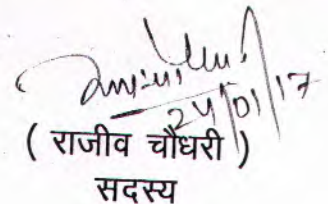 24/01/17
( राजीव चौधरी )
सदस्य